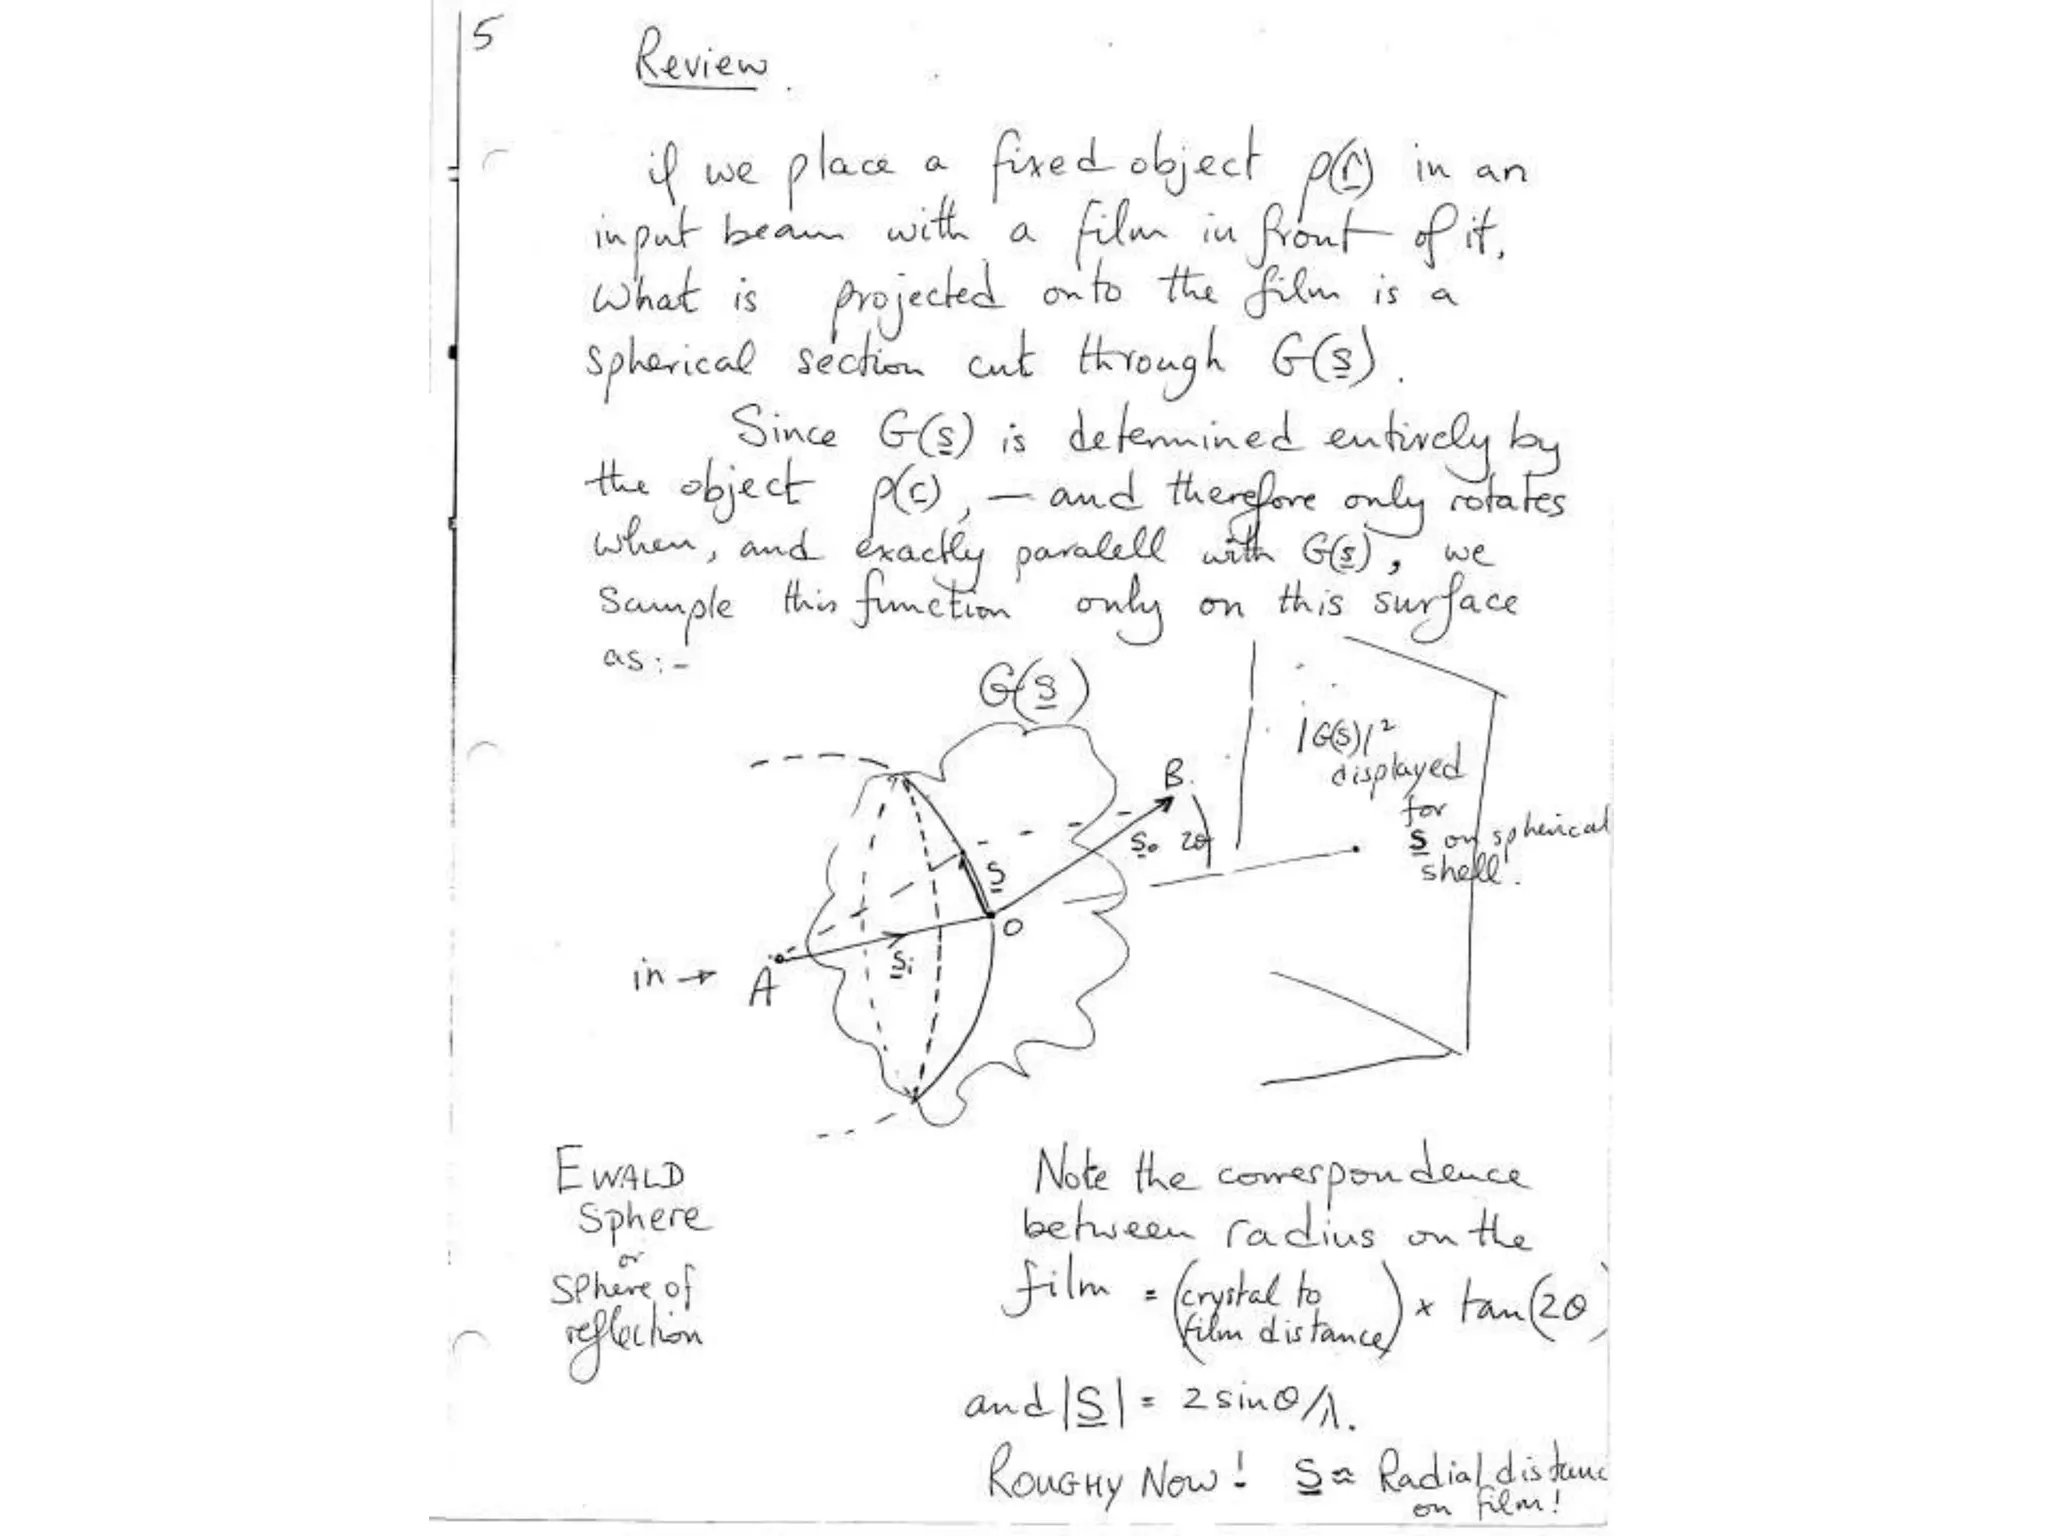 5
Review.
if we place a fixed object ρ(r) in an
input beam with a film in front of it,
what is projected onto the film is a
spherical section cut through G(s).
Since G(s) is determined entirely by
the object ρ(r), — and therefore only rotates
when, and exactly paralell with G(s), we
sample this function only on this surface
as:-
G(s)
|G(s)|²
displayed
for
s on spherical
shell.
B.
s₀ 2θ
S
O
sᵢ
in → A
EWALD
Sphere
or
Sphere of
reflection
Note the correspondence
between radius on the
film = (crystal to film distance) × tan(2θ)
and |S| = 2 sinθ/λ.
ROUGHY NOW! S ≈ Radial distanc
on film!